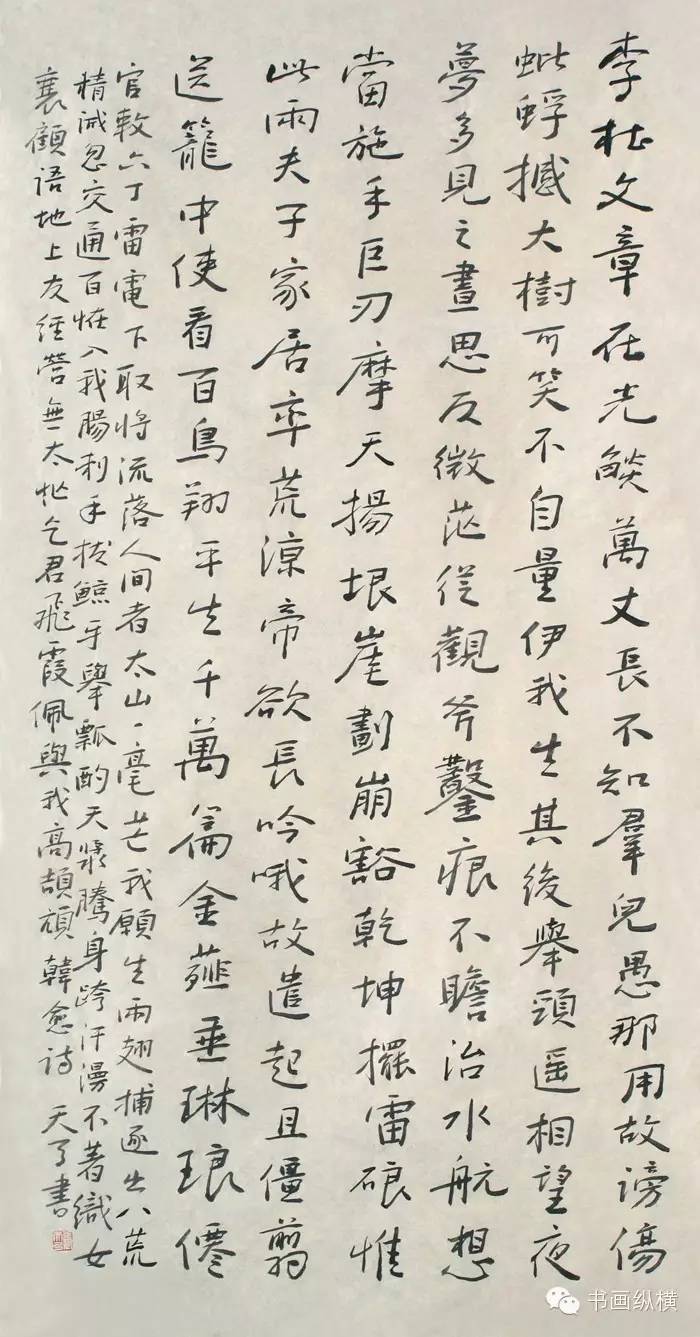 李杜文章在光燄萬丈長不知羣兒愚那用故謗傷
蚍蜉撼大樹可笑不自量伊我生其後舉頭遥相望夜
夢多見之晝思反微茫從觀斧鑿痕不瞻治水航想
當施手巨刃摩天揚垠崖劃崩豁乾坤擺雷硠惟
此兩夫子家居率荒涼帝欲長吟哦故遣起且僵翦
送籠中使看百鳥翔平生千萬篇金薤垂琳琅僊
官敕六丁雷電下取將流落人间者太山一毫芒我願生兩翅捕逐出八荒
精诚忽交通百怪入我腸刺手拔鲸牙舉瓢酌天漿騰身跨汗漫不著織女
襄顧語地上友经营無太忙乞君飛霞佩與我高頡頏韓愈詩 天了書
书画纵横